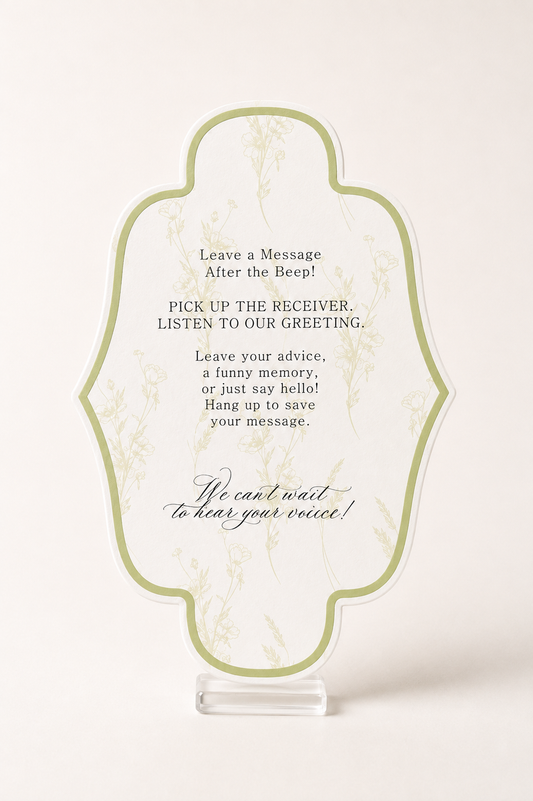 Leave a Message
After the Beep!
PICK UP THE RECEIVER.
LISTEN TO OUR GREETING.
Leave your advice,
a funny memory,
or just say hello!
Hang up to save
your message.
We can't wait
to hear your voicce!